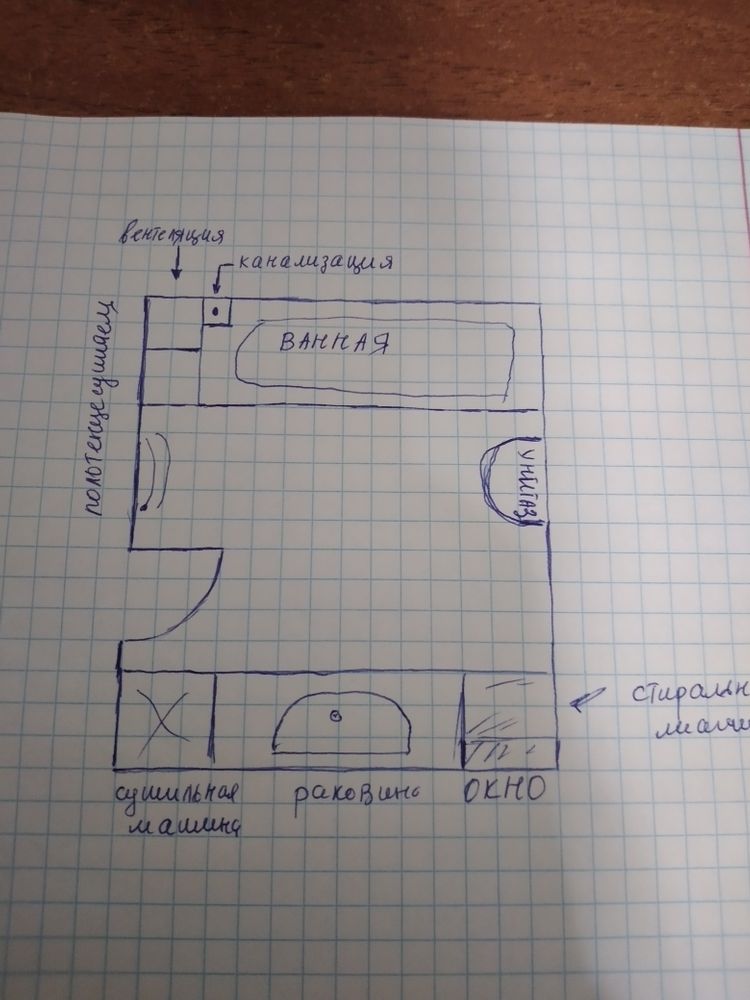 вентеляция
канализация
ВАННАЯ
полотенцесушитель
УНИТАЗ
стиральн
маши
сушильная
машина
раковина
ОКНО